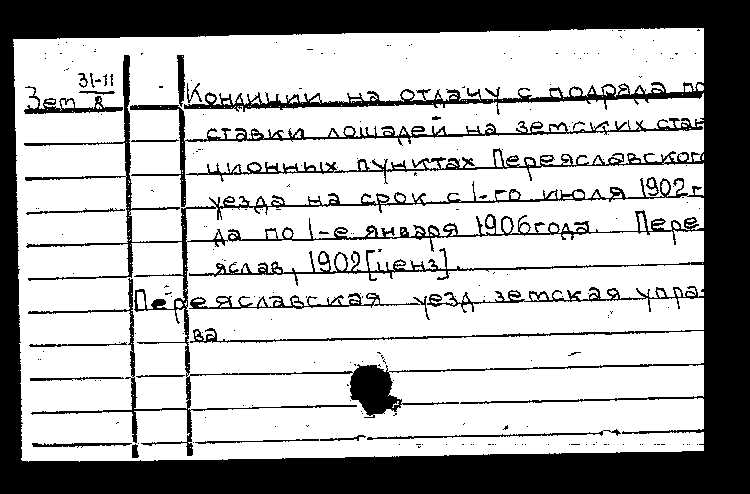 Зем 31-11/8 Кондиции на отдачу с подряда по
ставки лошадей на земских стан
ционных пунктах Переяславского
уезда на срок с 1-го июля 1902 г
да по 1-е января 1906 года. Пере
яслав, 1902 [ценз].
Переяславская уезд. земская упра-
ва.